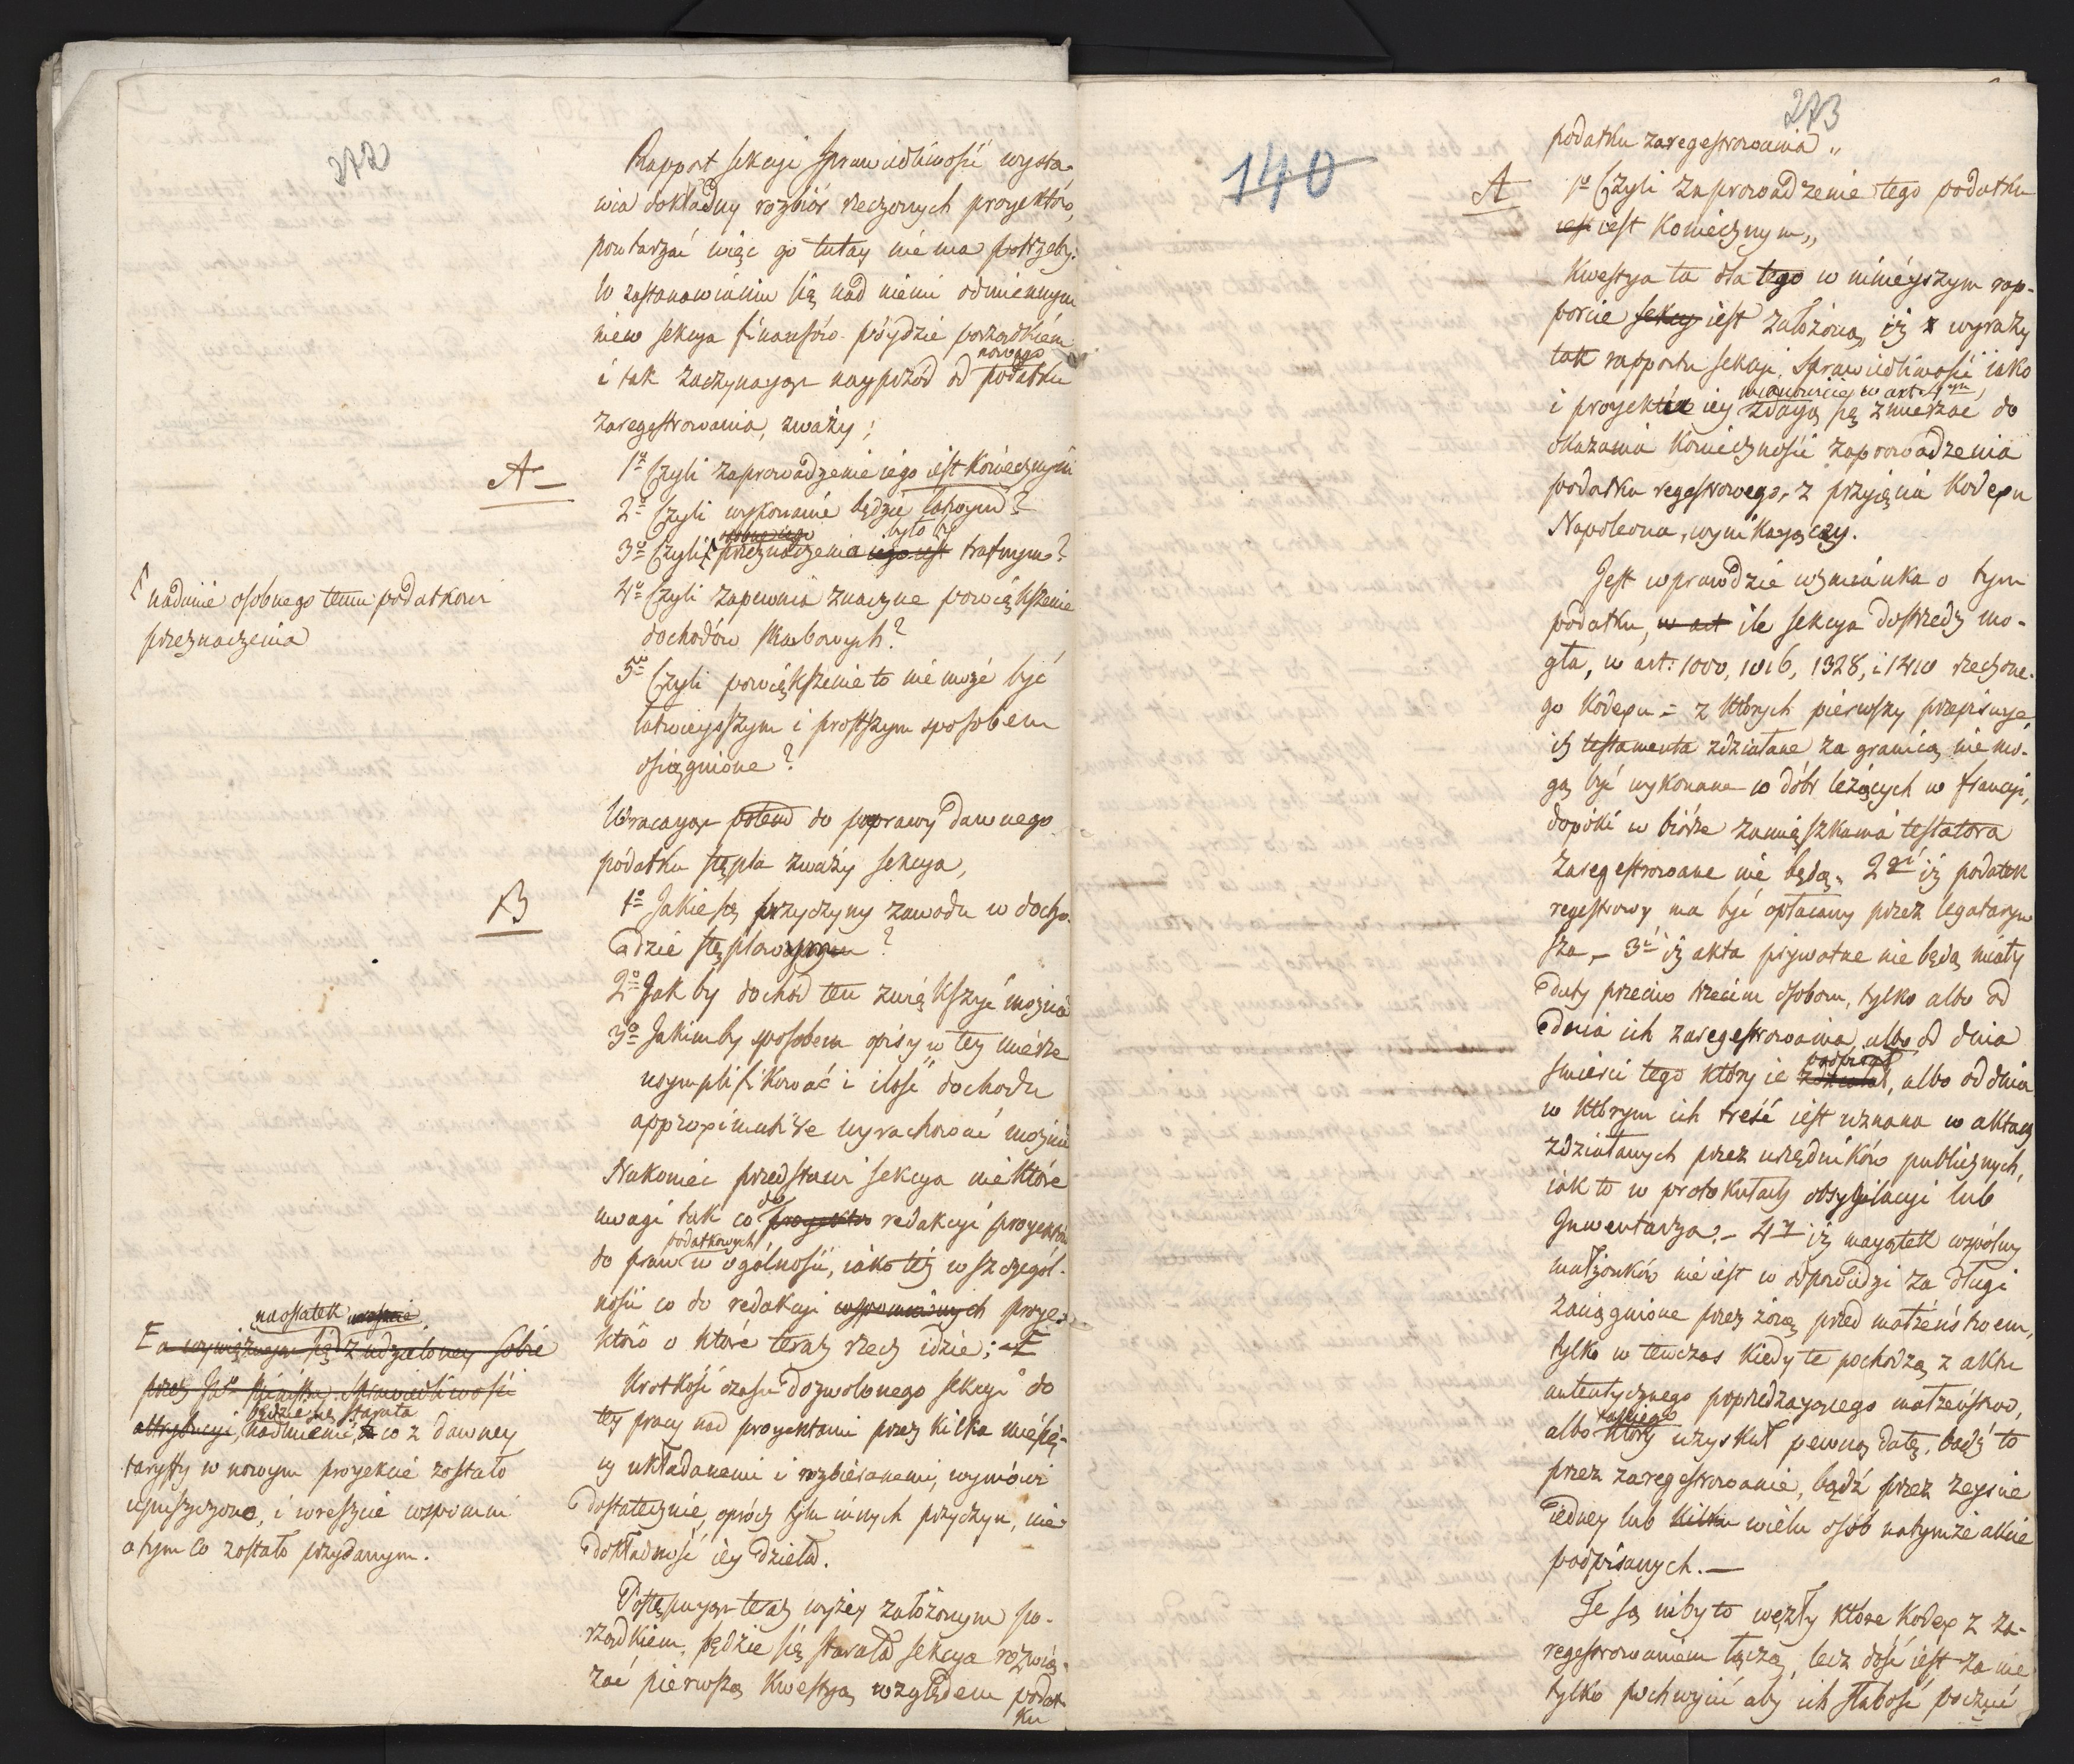 272
Rapport sekcyi Sprawiedliwości wysta-
wia dokładny rozbiór rzeczonych proyektów,
powtarzać więc go tutay nie ma potrzeby.
W zastanawianiu się nad niemi odmiennym
nieco sekcya finansów póydzie porządkiem
i tak zaczynaiąc nayprzód od nowego podatku
zaregestrowania, zważy;
A
1º Czyli zaprowadzenie iego iest koniecznym
2º Czyli wykonanie będzie łatwym?
3º Czyli przeznaczenia iego iest było trafnym?
Ⅎ nadanie osobnego temu podatkowi
przeznaczenia
4º Czyli zapewnia znaczne powiększenie
dochodów skarbowych?
5º Czyli powiększenie to nie może być
łatwieyszym i prostszym sposobem
osiągnione?
Wracaiąc potem do poprawy dawnego
podatku stępla zważy sekcya,
B
1º Jakie są przyczyny zawodu w docho-
dzie stęplowym?
2º Jak by dochód ten zwiększyć można
3º Jakimby sposobem opisy w tey mierze
usymplifikować i ilość dochodu
approximative wyrachować można
Nakoniec przedstawi sekcya niektóre
uwagi tak co do proyektów redakcyi proyektów
do praw podatkowych w ogólności, iako też w szczegól-
ności co do redakcyi wspomnionych proye-
któw o które teraz rzecz idzie;
naostatek wreszcie
a wywiązuiąc się z udzieloney sobie
przez JW Ministra Sprawiedliwości
attrybucyi, będzie się starała nadmienić, co z dawney
taryffy w nowym proyekcie zostało
opuszczone, i wreszcie wspomni
o tym co zostało przydanym.
Krotkość czasu dozwolonego sekcyi do
tey pracy nad proyektami przez kilka miesię-
cy układanemi i rozbieranemi, wymówi
dostatecznie, oprócz tylu innych przyczyn, nie-
dokładność iey dzieła.
Postępuiąc teraz wyżey założonym po-
rządkiem, będzie się starała sekcya rozwią-
zać pierwszą kwestyą względem podat-
ku
273
140
podatku zaregestrowania „
A
1º Czyli zaprowadzenie tego podatku
iest iest koniecznym „
Kwestya ta dla tego w ninieyszym rap-
porcie sekcyi iest założona, iż wyrazy
tak rapportu sekcyi Sprawiedliwości iako
i proyektu iey mianowicie w art. zdaią się zmierzać do
okazania konieczności zaprowadzenia
podatku regestrowego, z przyięcia Kodexu
Napoleona, wynikaiącey.
Jest wprawdzie wzmianka o tym
podatku, w art ile sekcya dostrzedz mo-
gła, w art: 1000, 1016, 1328, i 1410 rzeczone-
go Kodexu = z których pierwszy przepisuie,
iż testamenta zdziałane za granicą nie mo-
gą być wykonane co dóbr leżących w francyi,
dopóki w biórze zamięszkania testatora
zaregestrowane nie będą, 2gi iż podatek
regestrowy ma być opłacany przez legataryu-
sza, – 3i iż akta prywatne nie będą miały
daty przeciw trzecim osobom, tylko albo od
dnia ich zaregestrowania, albo od dnia
śmierci tego który ie zdziałał podpisał, albo od dnia
w którym ich treść iest uznana w aktach
zdziałanych przez urzędników publicznych,
iak to w protokułach obsygilacyi lub
Inwentarza. – 4y iż maiątek wspólny
małżonków nie iest w odpowiedzi za długi
zaciągnione przez żonę przed małżeństwem,
tylko w tenczas kiedy te pochodzą z aktu
autentycznego poprzedzaiącego małżeństwo,
albo który takiego uzyskał pewną datę, bądź to
przez zaregestrowanie, bądź przez zeyście
iedney lub kilku wielu osób na tymże akcie
podpisanych. –
Te są niby to węzły które Kodex z za-
regestrowaniem łączą, lecz dość iest za nie
tylko pochwycić aby ich słabość poczuć